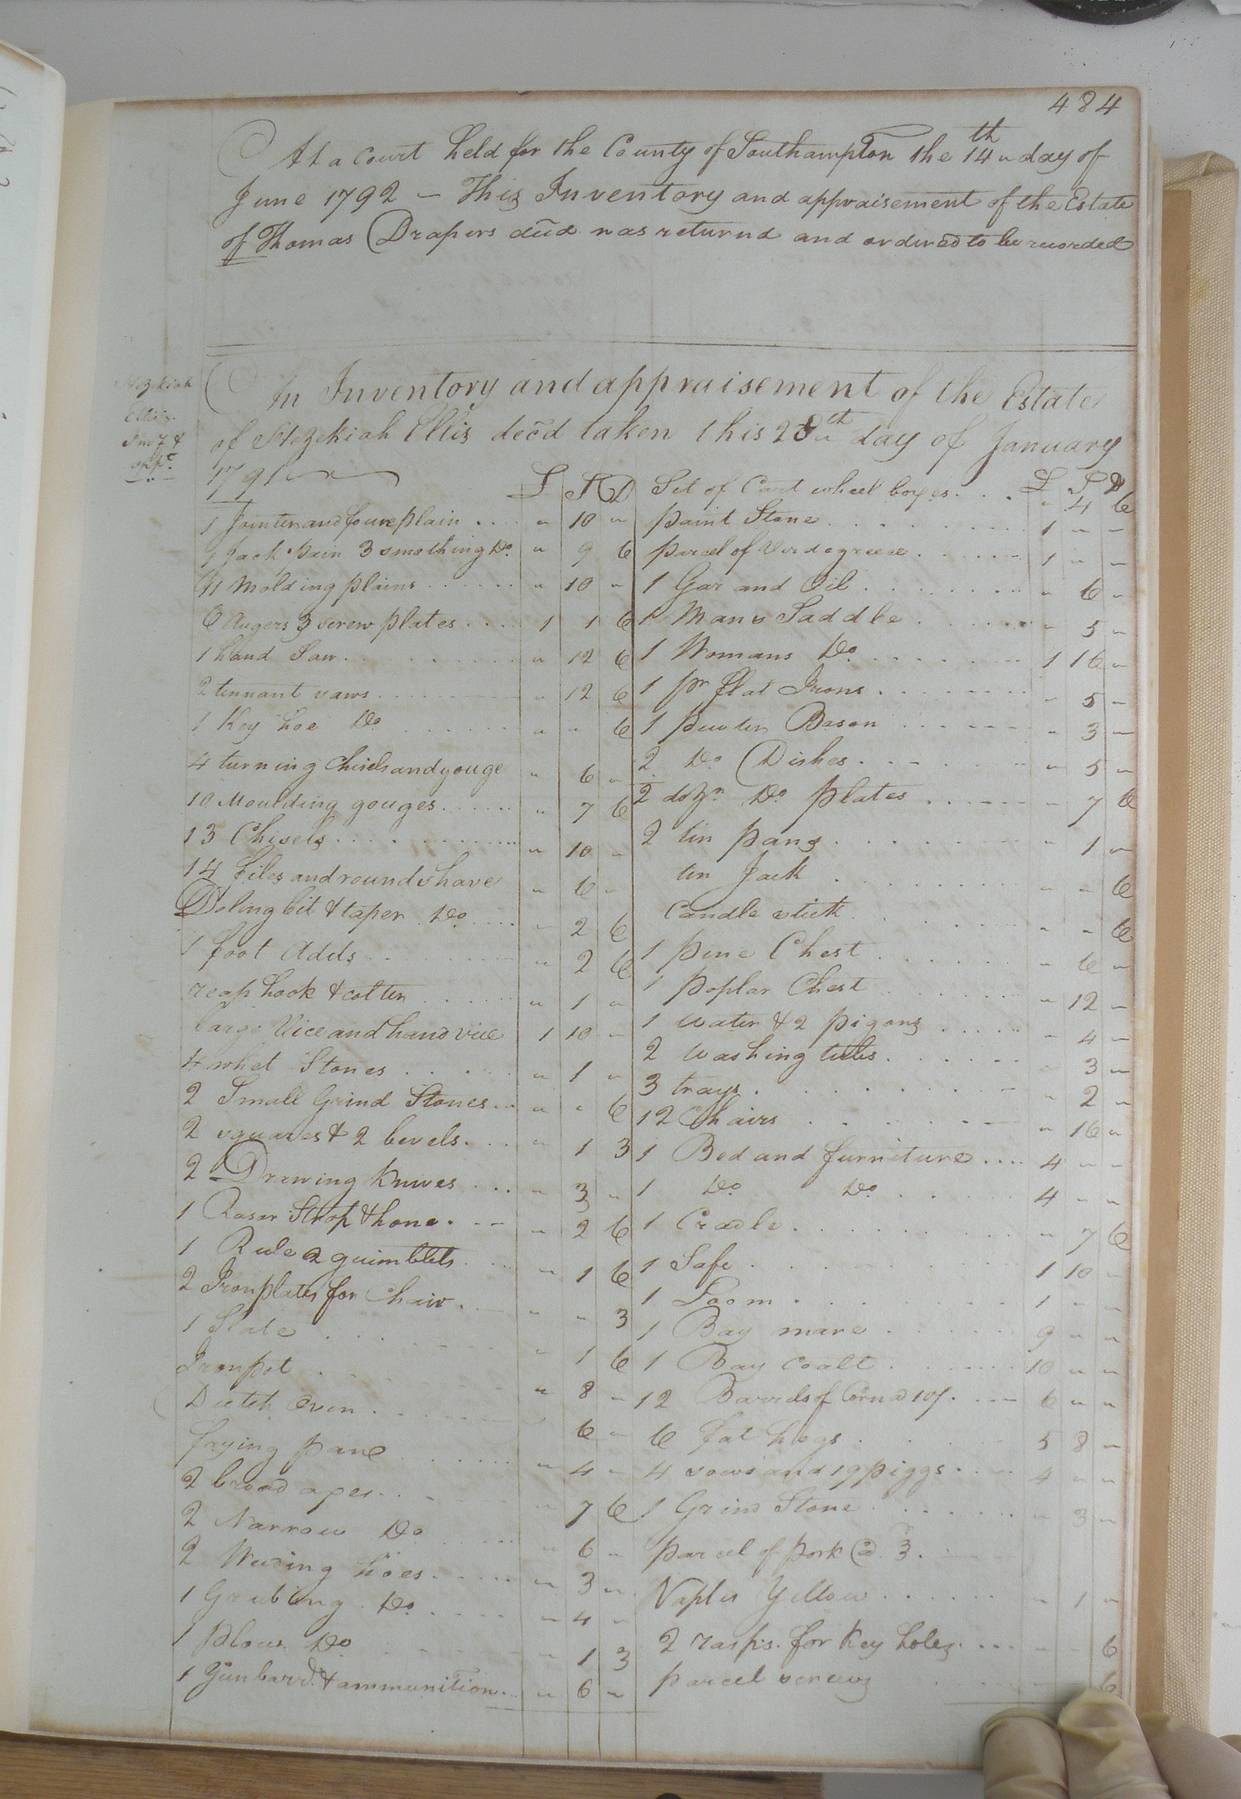 484
At a Court held for the County of Southampton the 14th day of
June 1792 — This Inventory and appraisement of the Estate
of Thomas Drapers decd was returnd and ordered to be recorded
Hezekiah
Ellis
Invt &
appt
An Inventory and appraisement of the Estate
of Hezekiah Ellis decd taken this 28th day of January
1791
£ S D
1 Jointer and foure plain .... " 10 "
Jack pain 3 smothing Do. " 9 6
Molding plains ...... " 10 "
6 Augers 3 screw plates .... 1 1 6
1 hand Saw ........ " 12 6
2 tennant saws ....... " 12 6
1 Key hoe Do ....... " " 6
4 turning Chisels and gouge " 6 "
10 Moulding gouges ..... " 7 6
13 Chisels .......... " 10 "
14 Files and round shave " 6 "
bit & taper Do .... " 2 6
1 foot Adds ....... " 2 6
reap hook & cotter ..... " 1 "
large Vice and hand vice 1 10 "
4 whet Stones ...... " 1 "
2 Small Grind Stones ... " " 6
2 squares & 2 bevels .... " 1 3
2 Drawing Knives .... " 3 "
1 Rasor Strop & hone . -- " 2 6
1 Rule 2 guimblets ... " 1 6
2 Iron plates for Chair . " " 3
1 Slate ........ " 1 6
Iron pot ........ " 8 "
Dutch Oven ....... 6 "
frying pane ...... " 4 "
2 broad axes ...... " 7 6
2 Narrow Do ..... " 6 "
2 Weeding hoes ..... " 3 "
1 Grubing Do ..... " 4 "
1 plow Do ....... " 1 3
1 Gun barrd. & ammunition .. " 6 "
£ S D
Set of Cart wheel boxes ... " 4 6
paint Stone ....... 1 " "
parcel of Verdegreece ...... 1 " "
1 Gar and Oil ........ " 6 "
1 Mans Saddle ....... " 5 "
1 Womans Do ....... 1 16 "
1 pr flat Irons ....... " 5 "
1 pewter Bason ....... " 3 "
2 Do Dishes ....... " 5 "
2 dozn Do plates ...... " 7 6
2 tin pans ........ " 1 "
tin Jack ........ " " 6
Candle stick ....... " " 6
1 pine Chest ....... " 6 "
1 poplar Chest ....... " 12 "
1 water & 2 pigons ..... " 4 "
2 washing tubs ...... " 3 "
3 trays ......... " 2 "
12 Chairs ........ " 16 "
1 Bed and furniture .... 4 " "
1 Do Do ...... 4 " "
1 Cradle ........ " 7 6
1 Safe ......... 1 10 "
1 Loom ........ 1 " "
1 Bay mare ...... 9 " "
1 Bay Coalt ...... 10 " "
12 Barrels of Corn @ 10/ .... 6 " "
6 fat hogs ...... 5 8 "
4 sows and 19 piggs .... 4 " "
1 Grind Stone ...... " 3 "
parcel of pork @ 3 . .
Naples Yellow ...... " 1 "
2 rasps for Key holes .... " " 6
parcel screws ..... 6